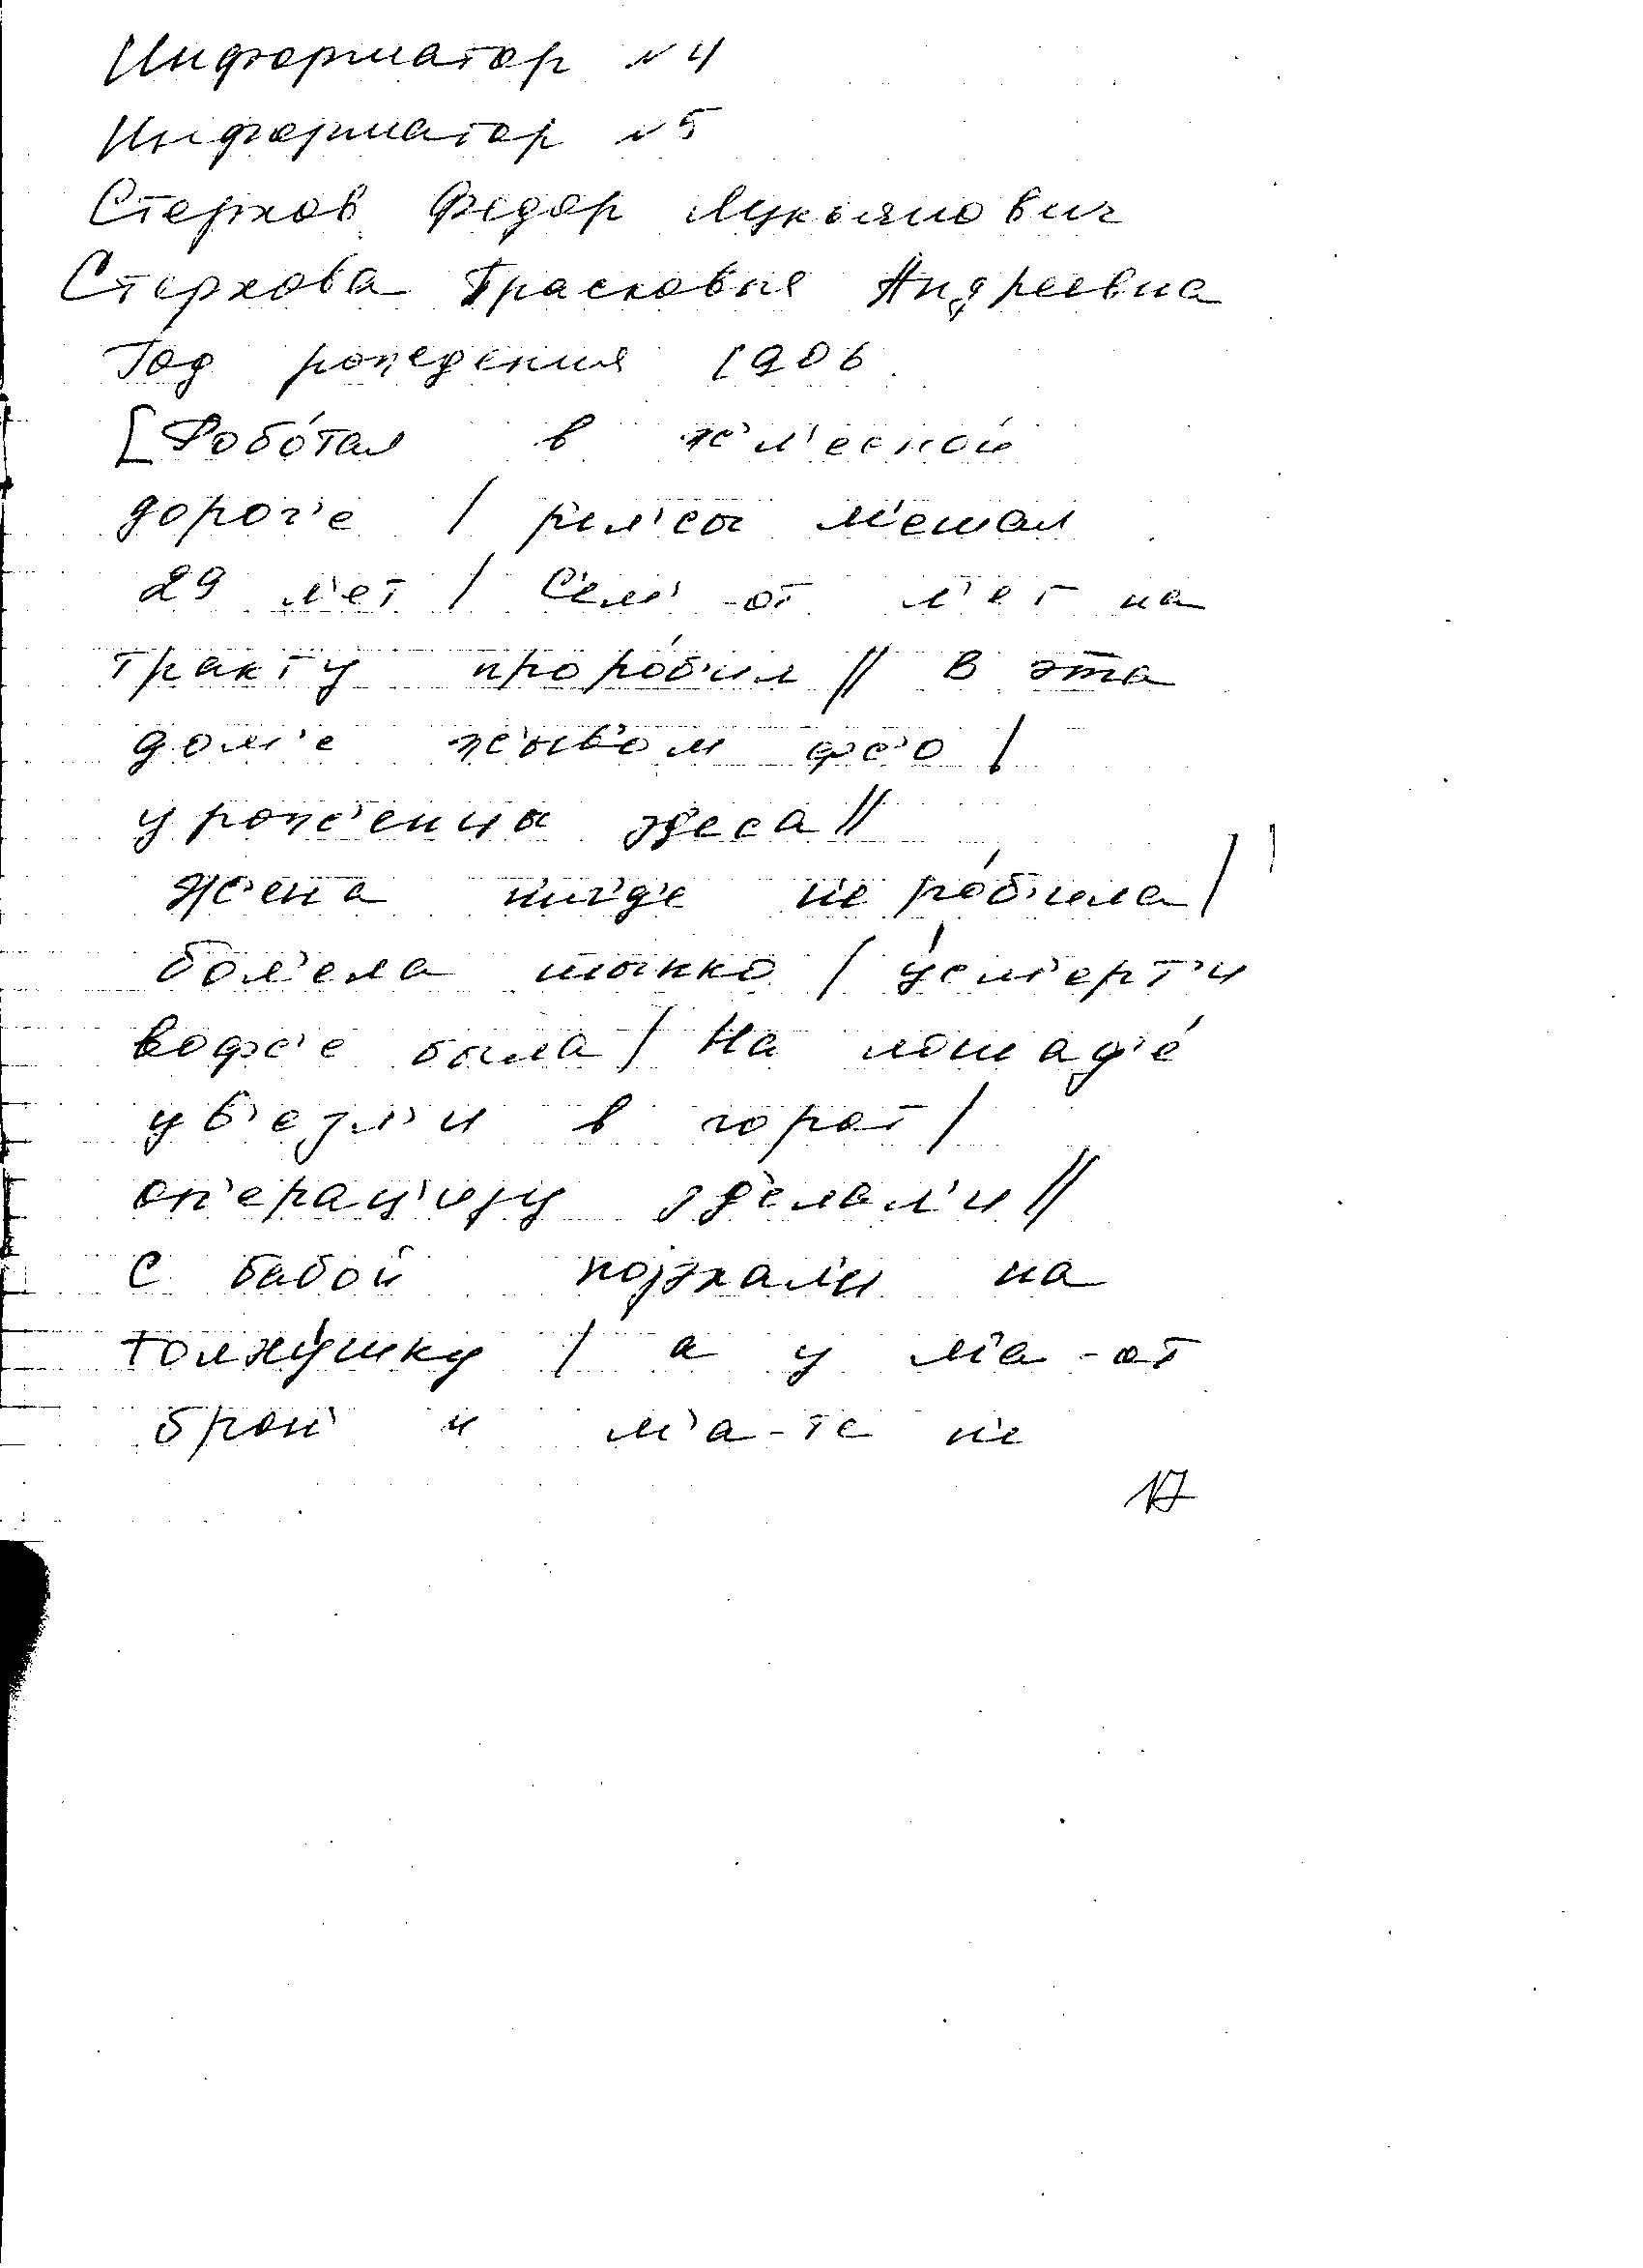 Информатор №4
Информатор №5
Стерхов Федор Лукьянович
Стерхова Прасковья Андреевна
Год рождения 1906
[Робо́тал в же́л'есной
дорог'е / р'ел'сы м'ешал
29 л'ет / С'ем'-от л'ет на
тракту проро́б'ил // В эта
дом'е жыв'ом фс'о /
урожэнцы здеса //
Жена н'игд'е н'е ро́б'ила /
бол'ела шыпко / у́см'ерт'и
вофс'е была / На лошад'е́
ув'езл'и в горот /
оп'ерац'ийу зд'елал'и //
С бабой пойэхал'и на
толку́шку / а у м'а-от
брон' и м'а-те н'е
17